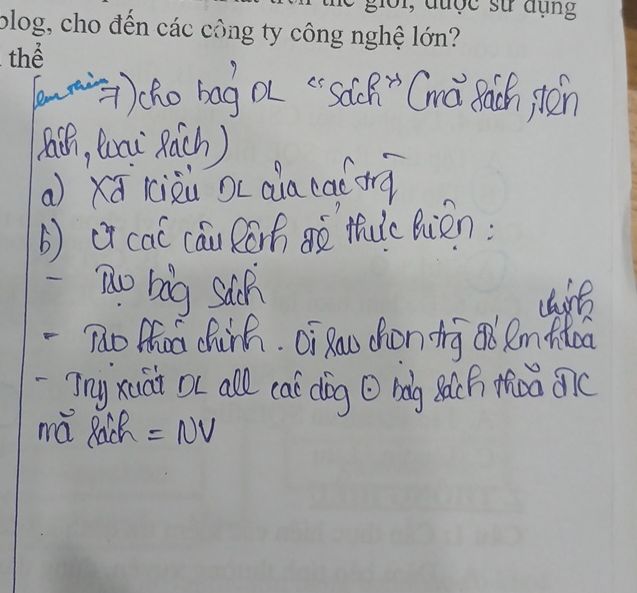 trên thế giới, được sử dụng
blog, cho đến các công ty công nghệ lớn?
thể
7) cho bảg DL "Sách" (mã sách, tên
sách, loại sách)
a) XĐ kiểu DL của các trg
b) các câu lệnh để thực hiện:
- Tạo bảg Sách
- Tạo khoá chính. Vì sao chọn trg đó làm khoá
chính
- Try xuất DL all các dòg bảg sách thoả ĐK
mã sách = NV